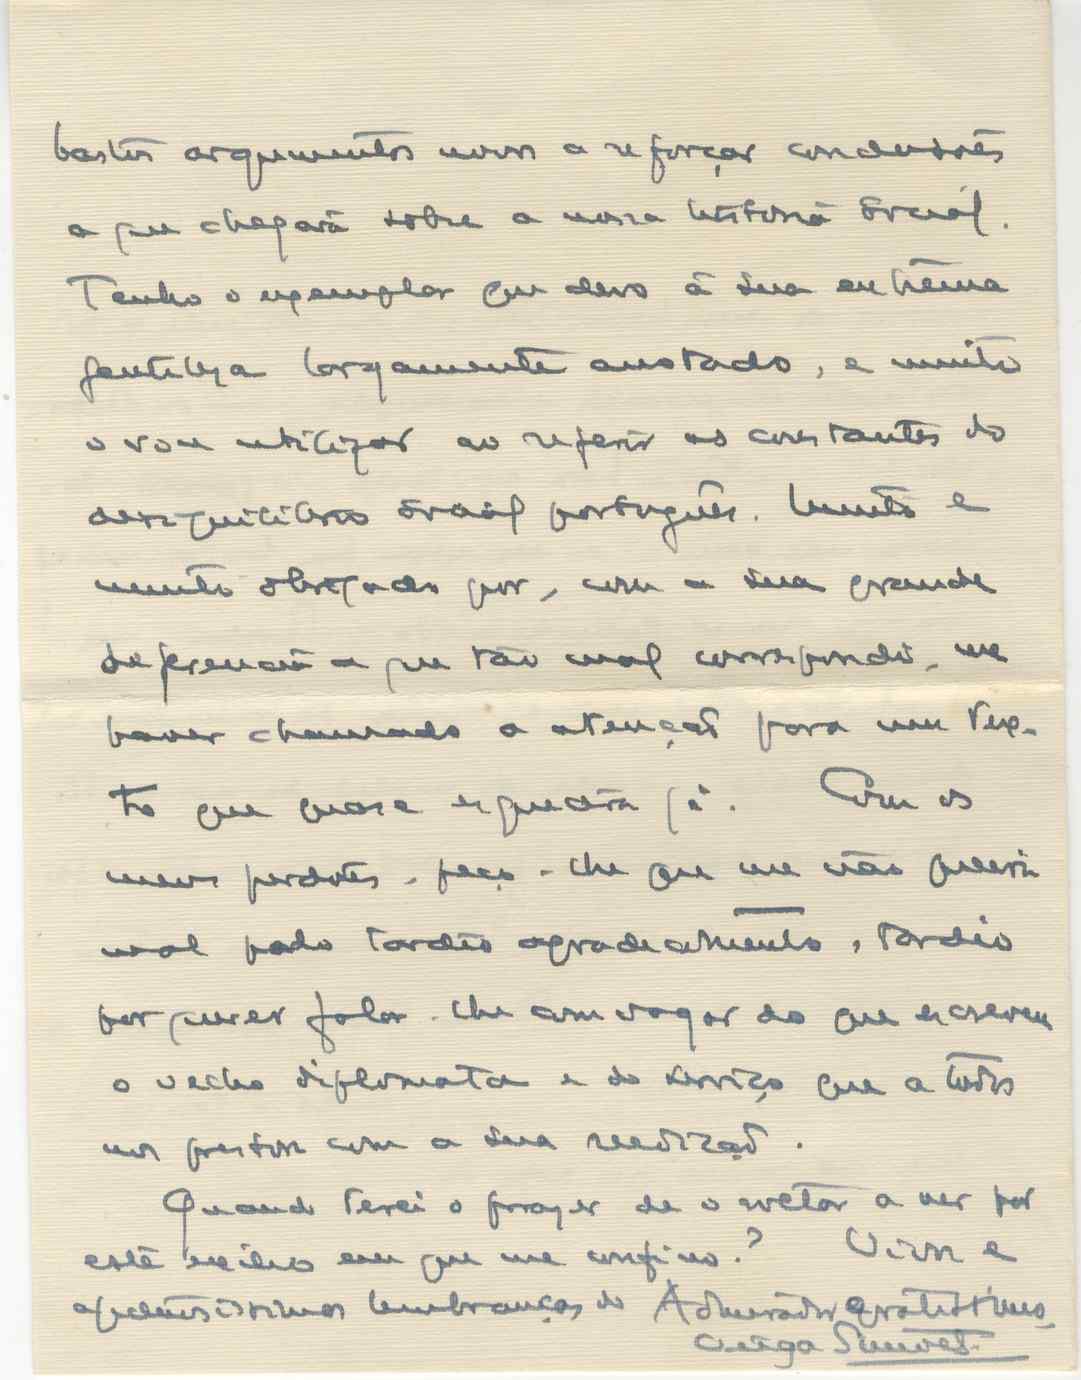 bastos argumentos novos a reforçar conclusões
a que chegara sobre a nossa história social.
Tenho o exemplar que devo à sua extrema
gentileza largamente anotado, e muito
o vou utilizar ao referir as constantes do
desiquilíbrio social português. Muito e
muito obrigado por, com a sua grande
deferencia a que tão mal correspondi, me
haver chamado a atenção para um tex-
to que quase esquecera já. Com os
meus perdões, peço-lhe que me não queira
mal pelo tardio agradecimento, tardio
por querer falar-lhe com vagar do que escreveu
o velho diplomata e do serviço que a todos
nos prestou com a sua reedição.
Quando terei o prazer de o voltar a ver por
este exílio em que me confino? Vivas e
afectuosíssimas lembranças do Admirador gratíssimo,
Veiga Simões